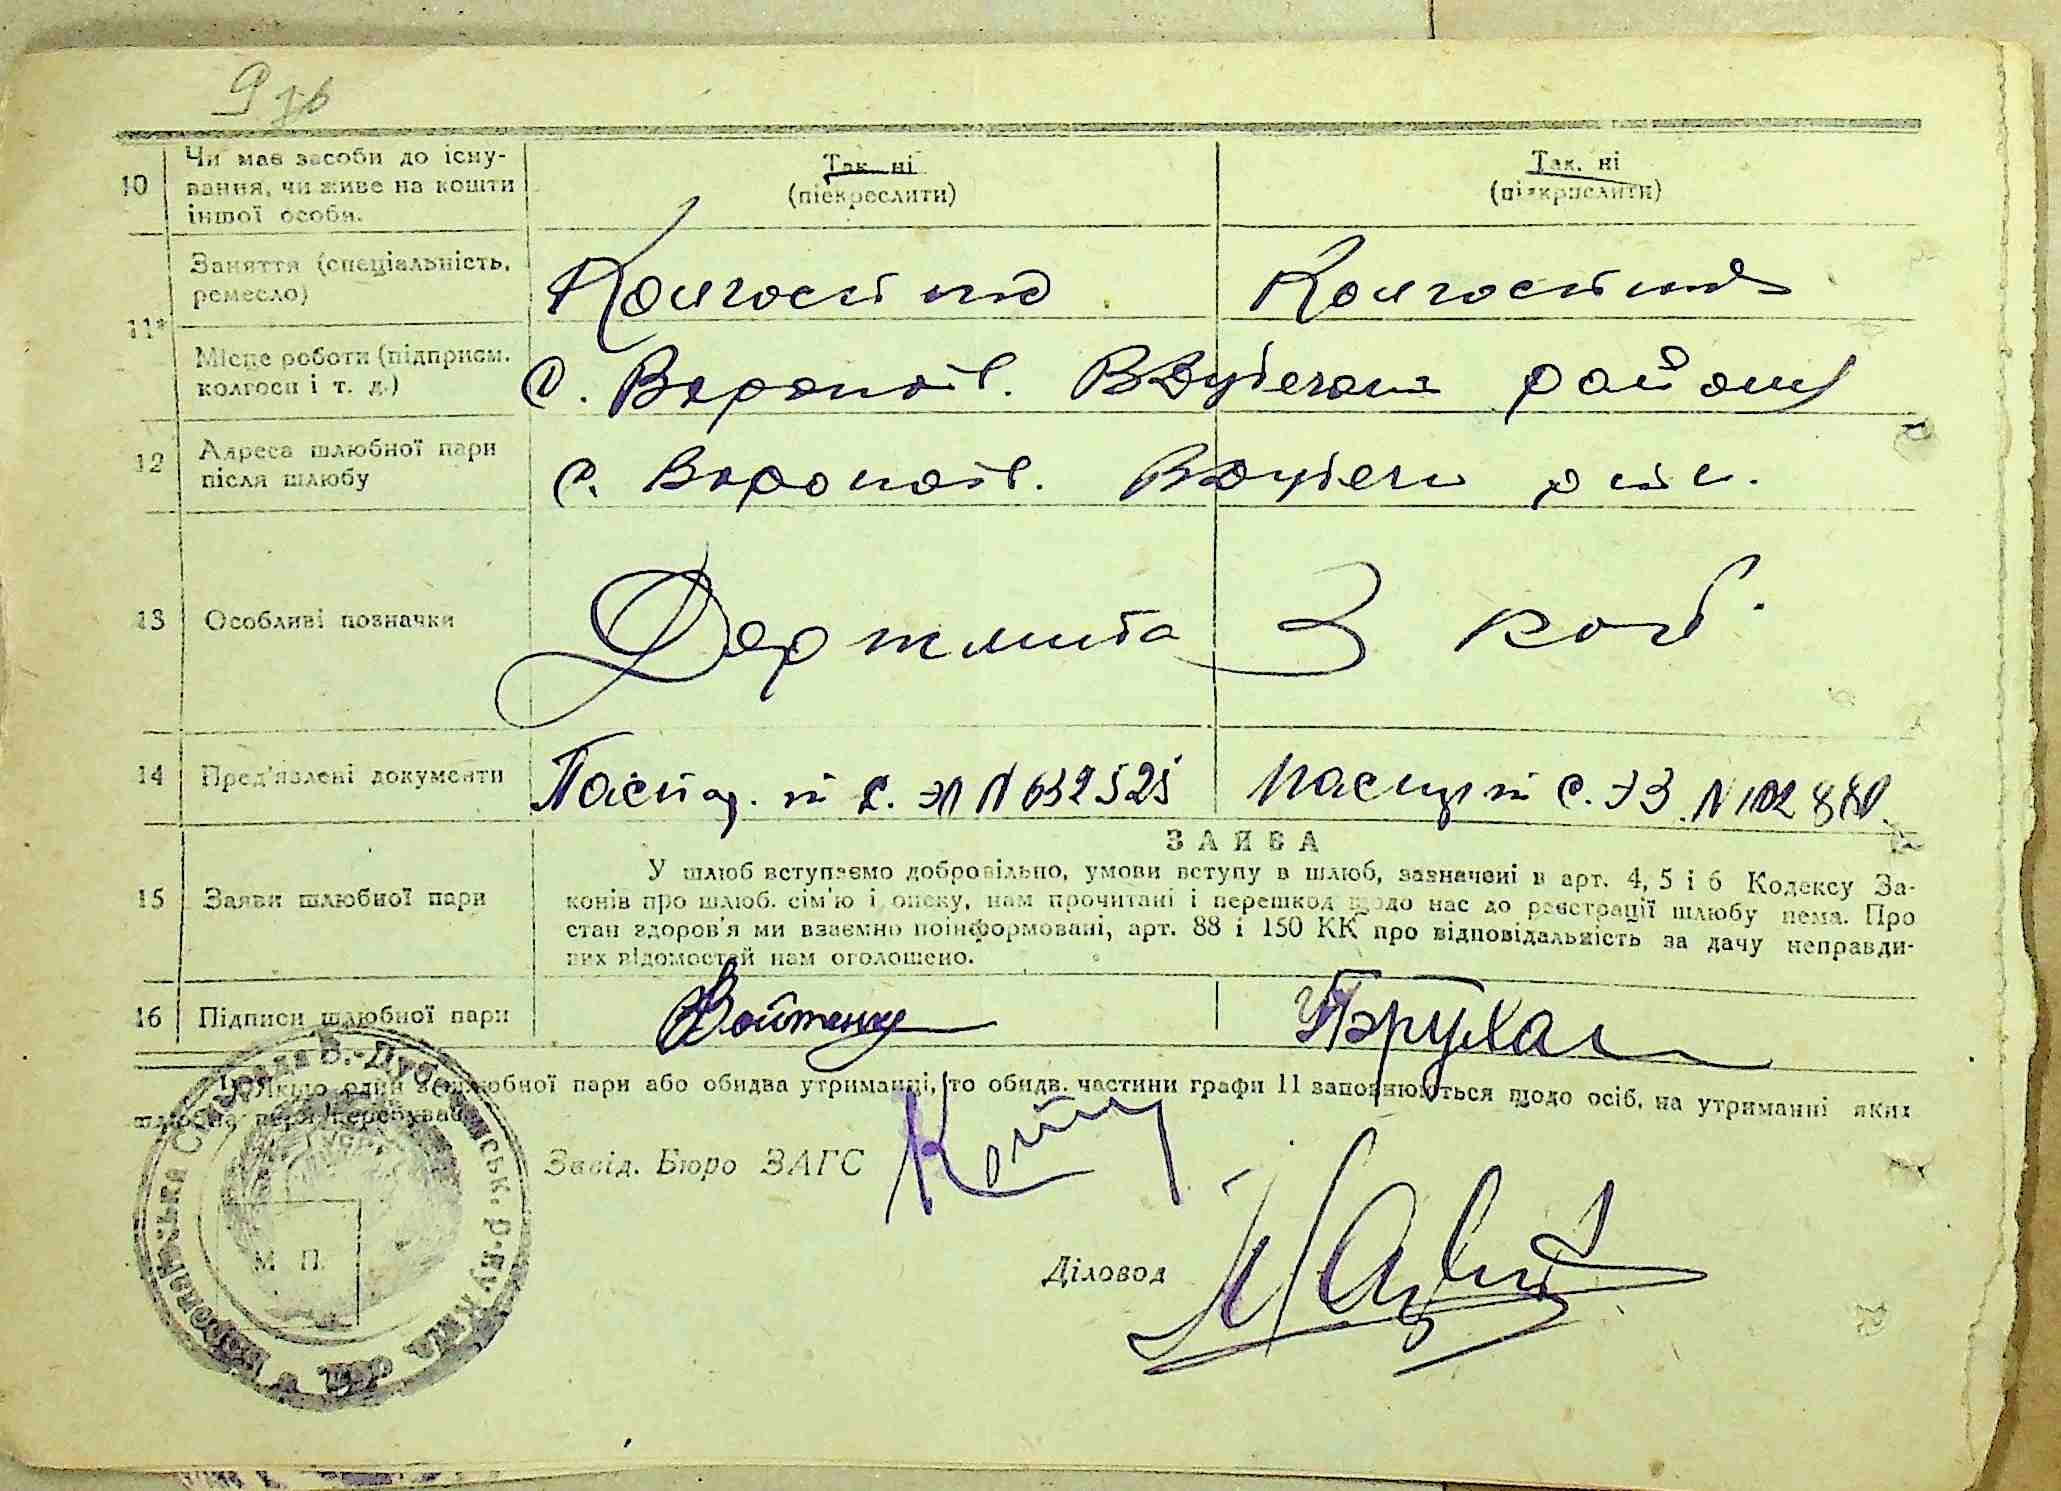 9 зв
10 Чи має засоби до існу-
вання, чи живе на кошти
іншої особи.
Так ні
(піекреслити)
Так, ні
(підкрислити)
11* Заняття (спеціальність,
ремесло)
Колгоспник
Колгоспниця
Місце роботи (підприєм.
колгосп і т. д.)
с. Воропаїв. район
12 Адреса шлюбної пари
після шлюбу
с. Воропаїв.
13 Особливі позначки
Держмита 3 карб.
14 Пред'явлені документи
Паспорт с. ЭЛ N 632525
паспорт с. ЭЗ. N 102
ЗАЯВА
15 Заяви шлюбної пари
У шлюб вступаємо добровільно, умови вступу в шлюб, зазначені в арт. 4, 5 і 6 Кодексу За-
конів про шлюб. сім'ю і опіку, нам прочитані і перешкод щодо нас до реєстрації шлюбу нема. Про
стан здоров'я ми взаємно поінформовані, арт. 88 і 150 КК про відповідальність за дачу неправди-
вих відомостей нам оголошено.
16 Підписи шлюбної пари
Войтенко
1) Якщо один з шлюбної пари або обидва утриманці, то обидв. частини графи 11 заповнюються щодо осіб, на утриманні яких
шлюбна пара перебуває
Завід. Бюро ЗАГС
Діловод
М П.
Сільрада В.-Дубечанськ. р-ну